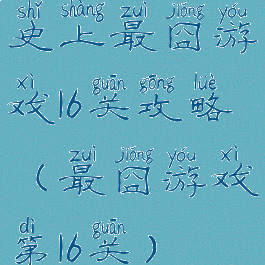 shǐ shàng zuì jiǒng yóu
史上最囧游
xì guān gōng lüè
戏16关攻略
zuì jiǒng yóu xì
（最囧游戏
dì guān
第16关）